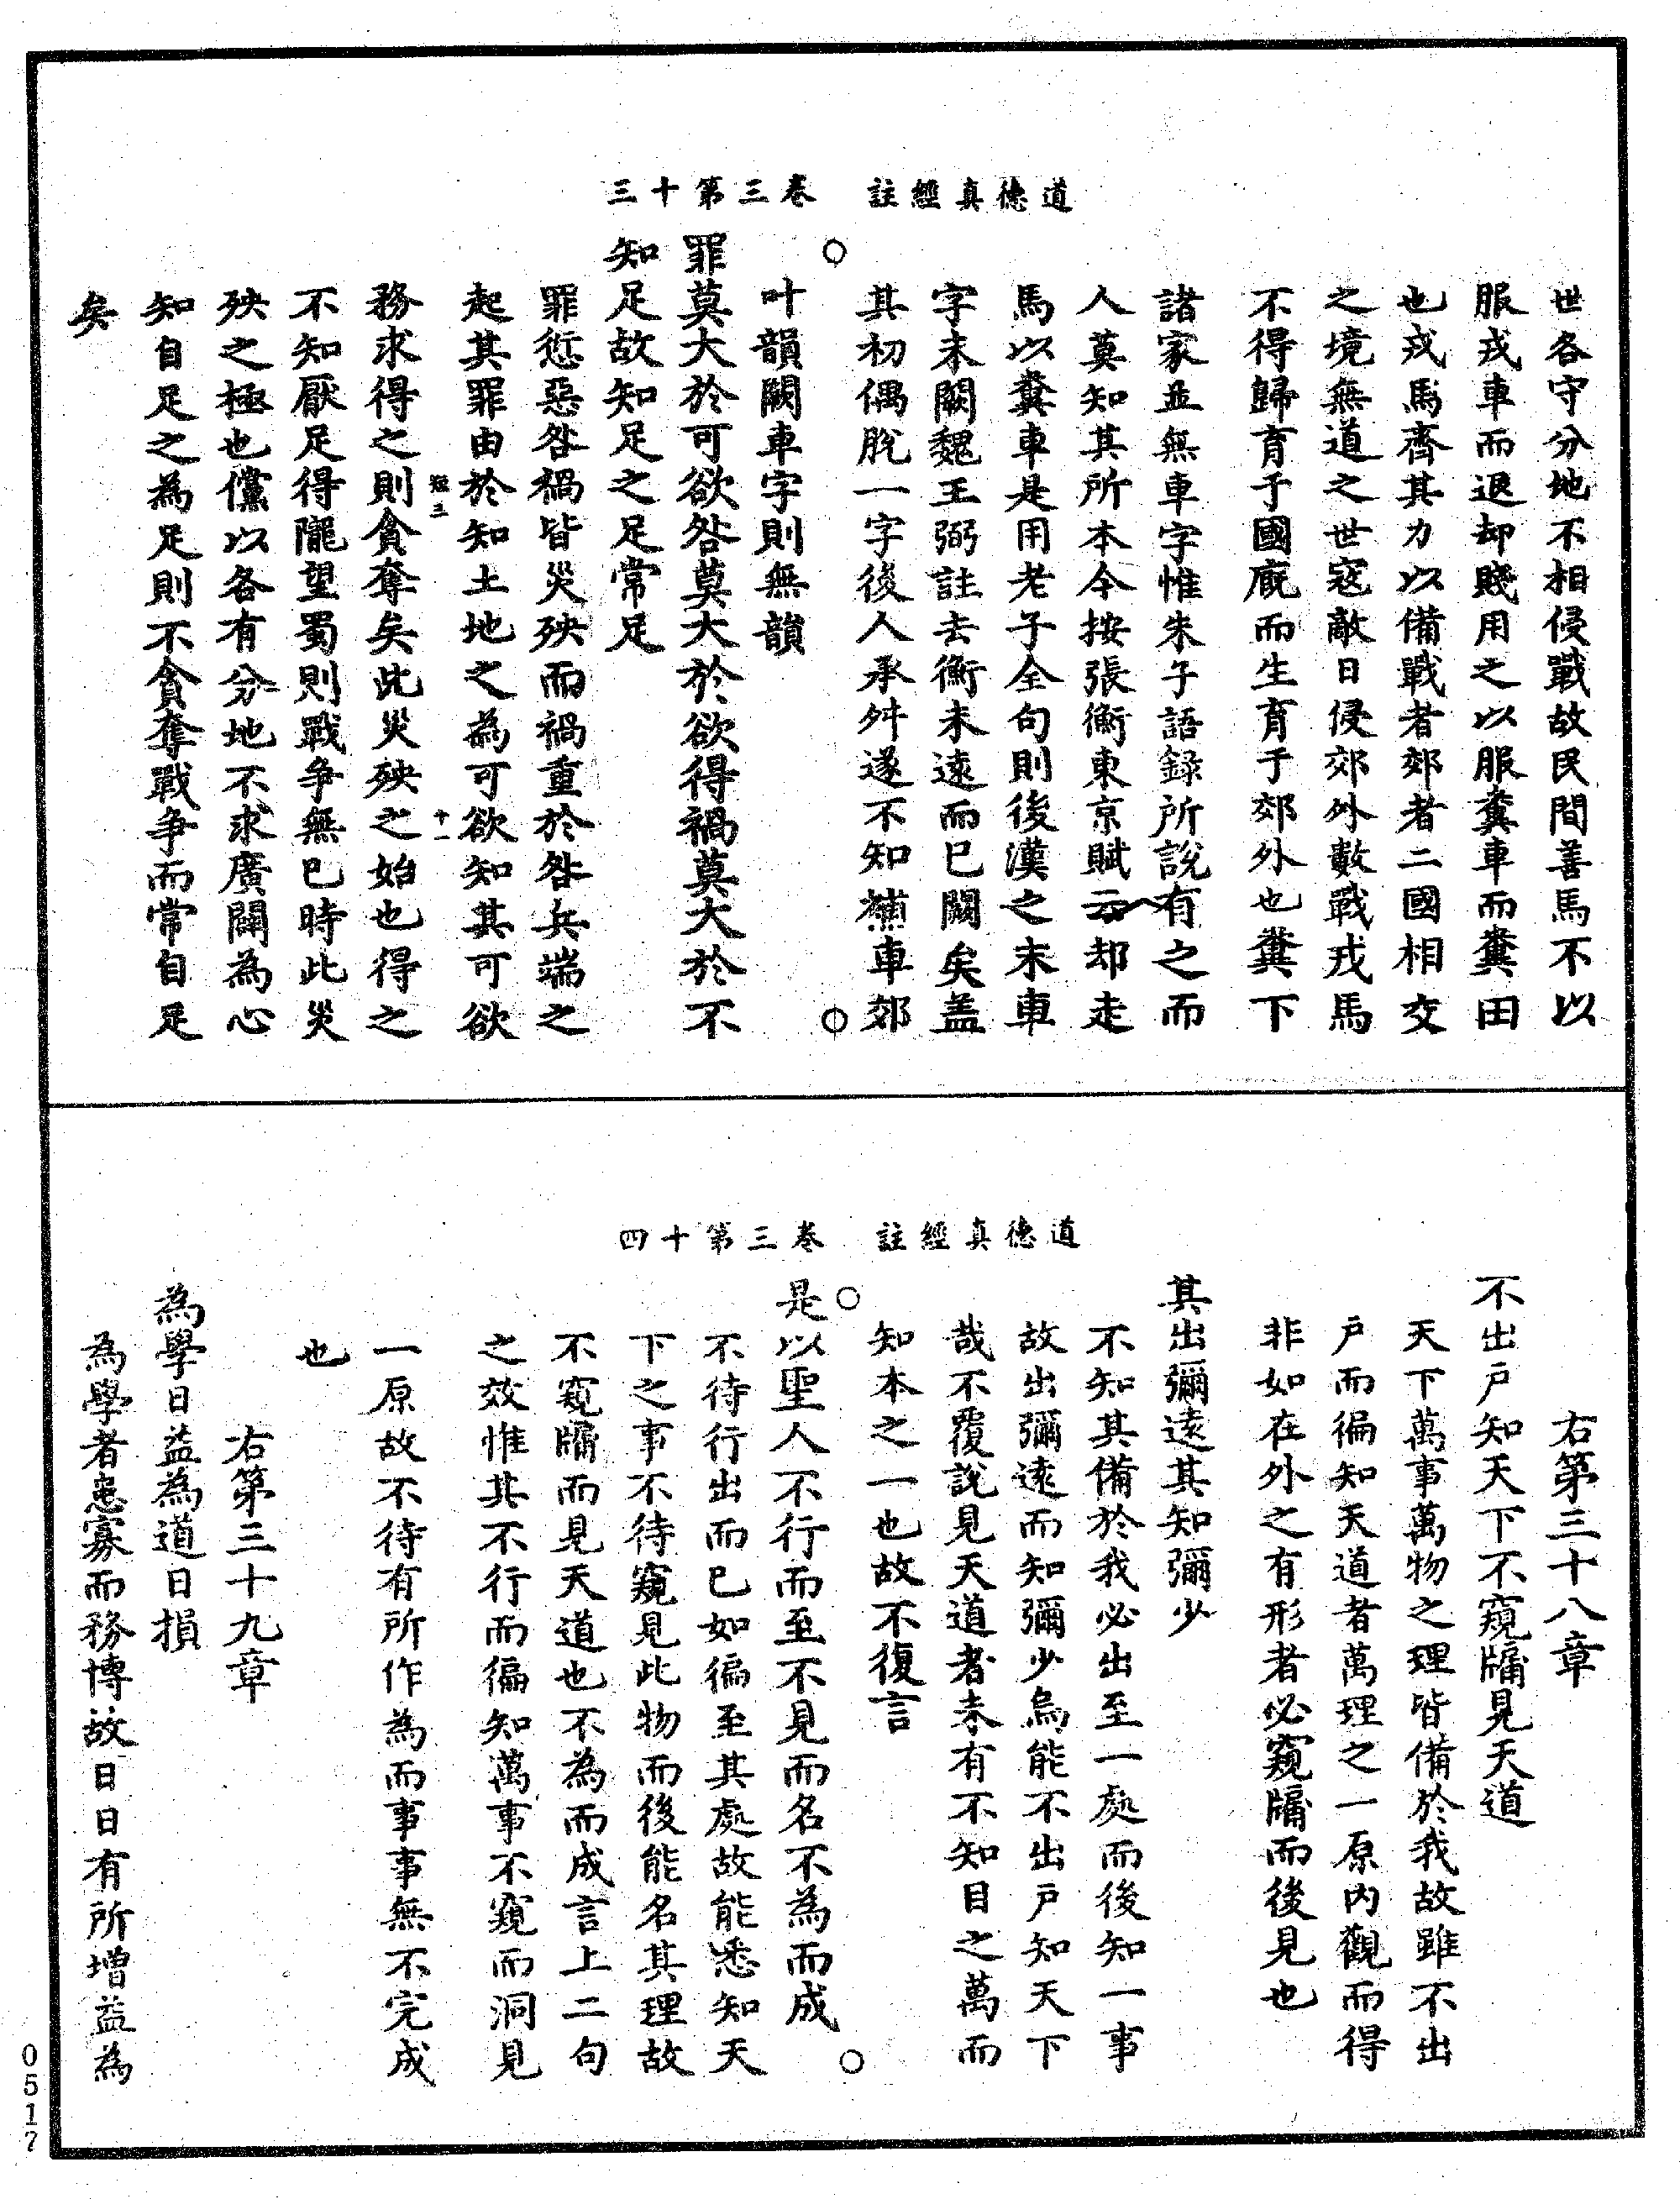 道德真經註　卷三第十三
世各守分地不相侵戰故民間善馬不以
服戎車而退却賤用之以服糞車而糞田
也戎馬齊其力以備戰者郊者二國相交
之境無道之世寇敵日侵郊外數戰戎馬
不得歸育于國廐而生育于郊外也糞下
諸家並無車字惟朱子語録所說有之而
人莫知其所本今按張衡東京賦云却走
馬以糞車是用老子全句則後漢之末車
字未闕魏王弼註去衡未遠而已闕矣盖
其初偶脫一字後人承舛遂不知補車郊
叶韻闕車字則無韻
罪莫大於可欲咎莫大於欲得禍莫大於不
知足故知足之足常足
罪愆惡咎禍皆災殃而禍重於咎兵端之
起其罪由於知土地之為可欲知其可欲
務求得之則貪奪矣此災殃之始也得之
不知厭足得隴望蜀則戰争無已時此災
殃之極也儻以各有分地不求廣闢為心
知自足之為足則不貪奪戰争而常自足
矣
道德真經註　卷三第十四
右第三十八章
不出戶知天下不窺牖見天道
天下萬事萬物之理皆備於我故雖不出
戶而徧知天道者萬理之一原内觀而得
非如在外之有形者必窺牖而後見也
其出彌遠其知彌少
不知其備於我必出至一處而後知一事
故出彌遠而知彌少烏能不出戶知天下
哉不覆說見天道者未有不知目之萬而
知本之一也故不復言
是以聖人不行而至不見而名不為而成
不待行出而已如徧至其處故能悉知天
下之事不待窺見此物而後能名其理故
不窺牖而見天道也不為而成言上二句
之效惟其不行而徧知萬事不窺而洞見
一原故不待有所作為而事事無不完成
也
右第三十九章
為學日益為道日損
為學者患寡而務博故日日有所增益為
0517